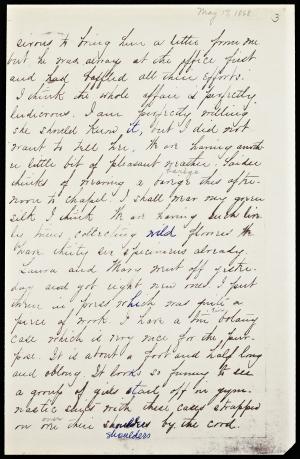 May 15, 1868
3
sirous to bring him a letter from me
but he was always at the office first
and had baffled all their efforts.
I think the whole affair is perfectly
ludicrous. I am perfectly willing
she should know it, but I did not
want to tell her. We are having another
a little bit of pleasant weather.
thinks of wearing a barege this after-
barege
noon to chapel. I shall wear my green
silk I think. We are having such live-
ly times collecting wild flowers. We
have thirty six specimens already.
Laura and Mary went off yester-
day and got eight new ones. I put
them in press which was quite a
piece of work. I have a tin botany
tin
case which is very nice for the pur-
pose. It is about a foot and half long
and oblong. It looks so funny to see
a group of girls start off in gym-
nastic suits with these cases strapped
over
on over their shoulders by the cord.
shoulders